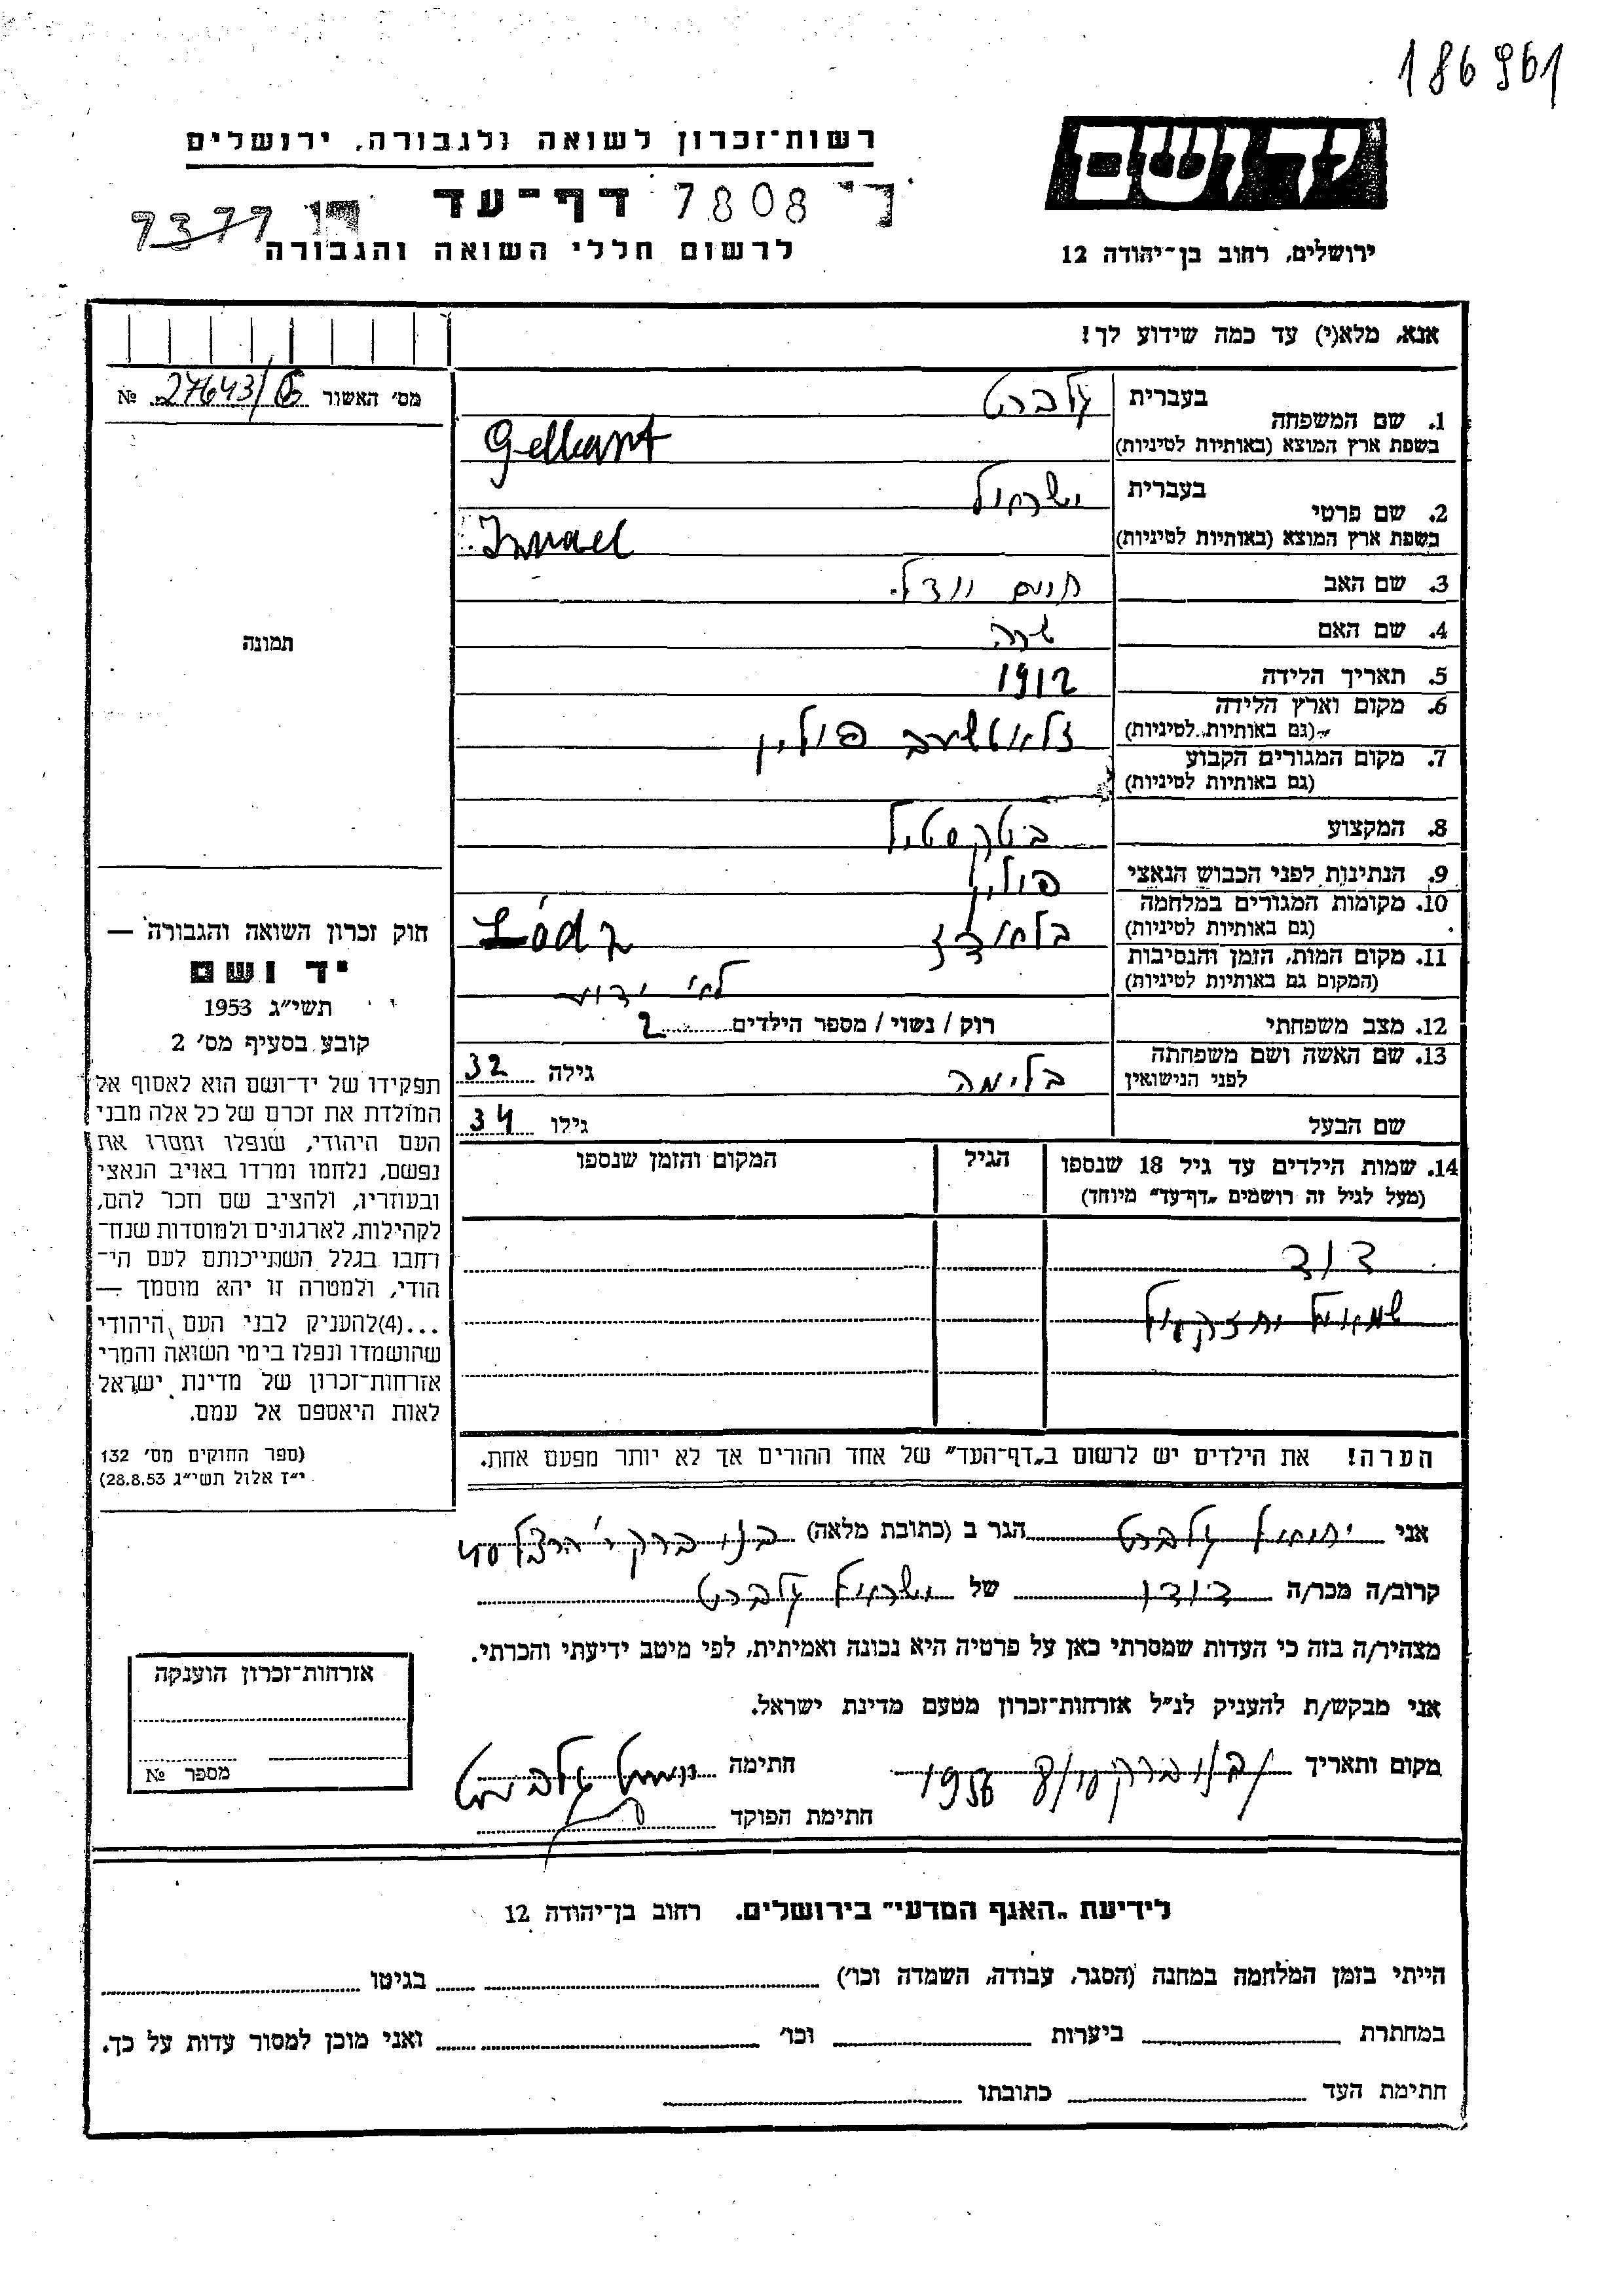 186961
רשות־זכרון לשואה ולגבורה, ירושלים
יד ושם
דף־עד 7808
7377
לרשום חללי השואה והגבורה
ירושלים, רחוב בן־יהודה 12
אנא, מלא(י) עד כמה שידוע לך!
מס׳ האשור 27643/ №
1. שם המשפחה בעברית גלברט
בשפת ארץ המוצא (באותיות לטיניות) Gelbart
2. שם פרטי בעברית ישראל
בשפת ארץ המוצא (באותיות לטיניות) Israel
3. שם האב חיים
4. שם האם שרה
5. תאריך הלידה 1912
6. מקום וארץ הלידה
(גם באותיות לטיניות) פולין
7. מקום המגורים הקבוע
(גם באותיות לטיניות)
8. המקצוע בטקסטיל
9. הנתינות לפני הכבוש הנאצי פולין
10. מקומות המגורים במלחמה
(גם באותיות לטיניות) בלודז Łódz
11. מקום המות, הזמן והנסיבות
(המקום גם באותיות לטיניות) לא ידוע
12. מצב משפחתי רוק / נשוי / מספר הילדים 2
13. שם האשה ושם משפחתה
לפני הנישואין בלימה גילה 32
שם הבעל גילו 34
14. שמות הילדים עד גיל 18 שנספו
(מעל לגיל זה רושמים „דף־עד״ מיוחד)
הגיל
המקום והזמן שנספו
דוד
שמואל יחזקאל
הערה! את הילדים יש לרשום ב„דף־העד״ של אחד ההורים אך לא יותר מפעם אחת.
תמונה
חוק זכרון השואה והגבורה —
יד ושם
תשי״ג 1953
קובע בסעיף מס׳ 2
תפקידו של יד־ושם הוא לאסוף אל
המולדת את זכרם של כל אלה מבני
העם היהודי, שנפלו ומסרו את
נפשם, נלחמו ומרדו באויב הנאצי
ובעוזריו, ולהציב שם וזכר להם,
לקהילות, לארגונים ולמוסדות שנח־
רחבו בגלל השתייכותם לעם הי־
הודי, ולמטרה זו יהא מוסמך —
...(4)להעניק לבני העם היהודי
שהושמדו ונפלו בימי השואה והמרי
אזרחות־זכרון של מדינת ישראל
לאות היאספם אל עמם.
(ספר החוקים מס׳ 132
י״ז אלול תשי״ג 28.8.53)
אני יחיאל גלברט הגר ב (כתובת מלאה) בני ברק
קרוב/ה מכר/ה דודן של ישראל גלברט
מצהיר/ה בזה כי העדות שמסרתי כאן על פרטיה היא נכונה ואמיתית, לפי מיטב ידיעתי והכרתי.
אני מבקש/ת להעניק לנ״ל אזרחות־זכרון מטעם מדינת ישראל.
מקום ותאריך בני ברק 1956 חתימה
חתימת הפוקד
אזרחות־זכרון הוענקה
מספר №
לידיעת „האגף המדעי״ בירושלים. רחוב בן־יהודה 12
הייתי בזמן המלחמה במחנה (הסגר, עבודה, השמדה וכו׳) בגיטו
במחתרת ביערות וכו׳ ואני מוכן למסור עדות על כך.
חתימת העד כתובתו